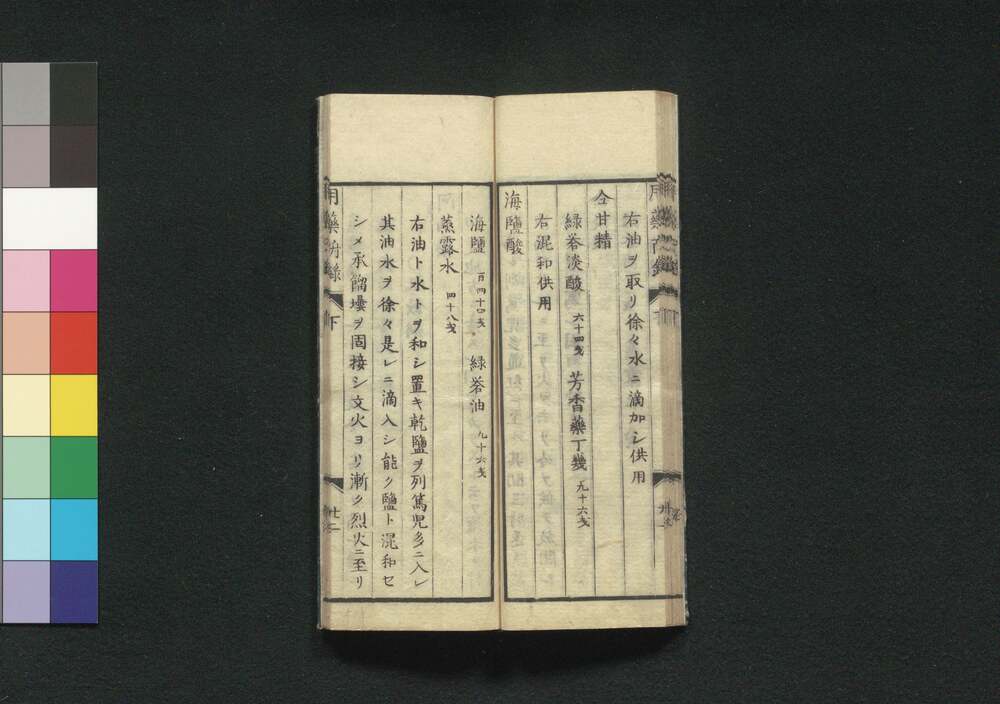 右油ヲ取リ徐々水ニ滴加シ供用
仝甘精
緑礬淡酸 六十四戔 芳香薬丁幾 九十六戔
右混和供用
海鹽酸
海鹽 百四十四戔 緑礬油 九十六戔
蒸露水 四十八戔
右油ト水トヲ和シ置キ乾鹽ヲ列篤児多ニ入レ
其油水ヲ徐々是レニ滴入シ能ク鹽ト混和セ
シメ承餾壜ヲ固接シ文火ヨリ漸ク烈火ニ至リ
下